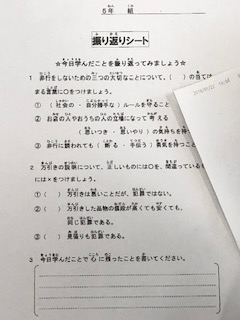 5年　組
振り返りシート
☆今日学んだことを振り返ってみましょう☆
1　非行をしないための三つの大切なことについて、（　）の当ては
まる言葉に○をつけましょう。
①　（ 社会の ・ 自分勝手な ）ルールを守る
②　お店の人やおうちの人の立場になって 考える
（ 思いつき ・ 思いやり ）の気持ちを持
③　非行に誘われても（ 断る ・ 手伝う ）勇気を持つこと
2　万引きの説明について、正しいものには○を、間違っている
いるには×をつけましょう。
①（　）万引きは悪いことだが、犯罪ではない。
②（　）万引きした品物の値段が高くても安くても、
同じ犯罪である。
③（　）見張りも犯罪である。
3　今日学んだことで心に残ったことを書いてください。